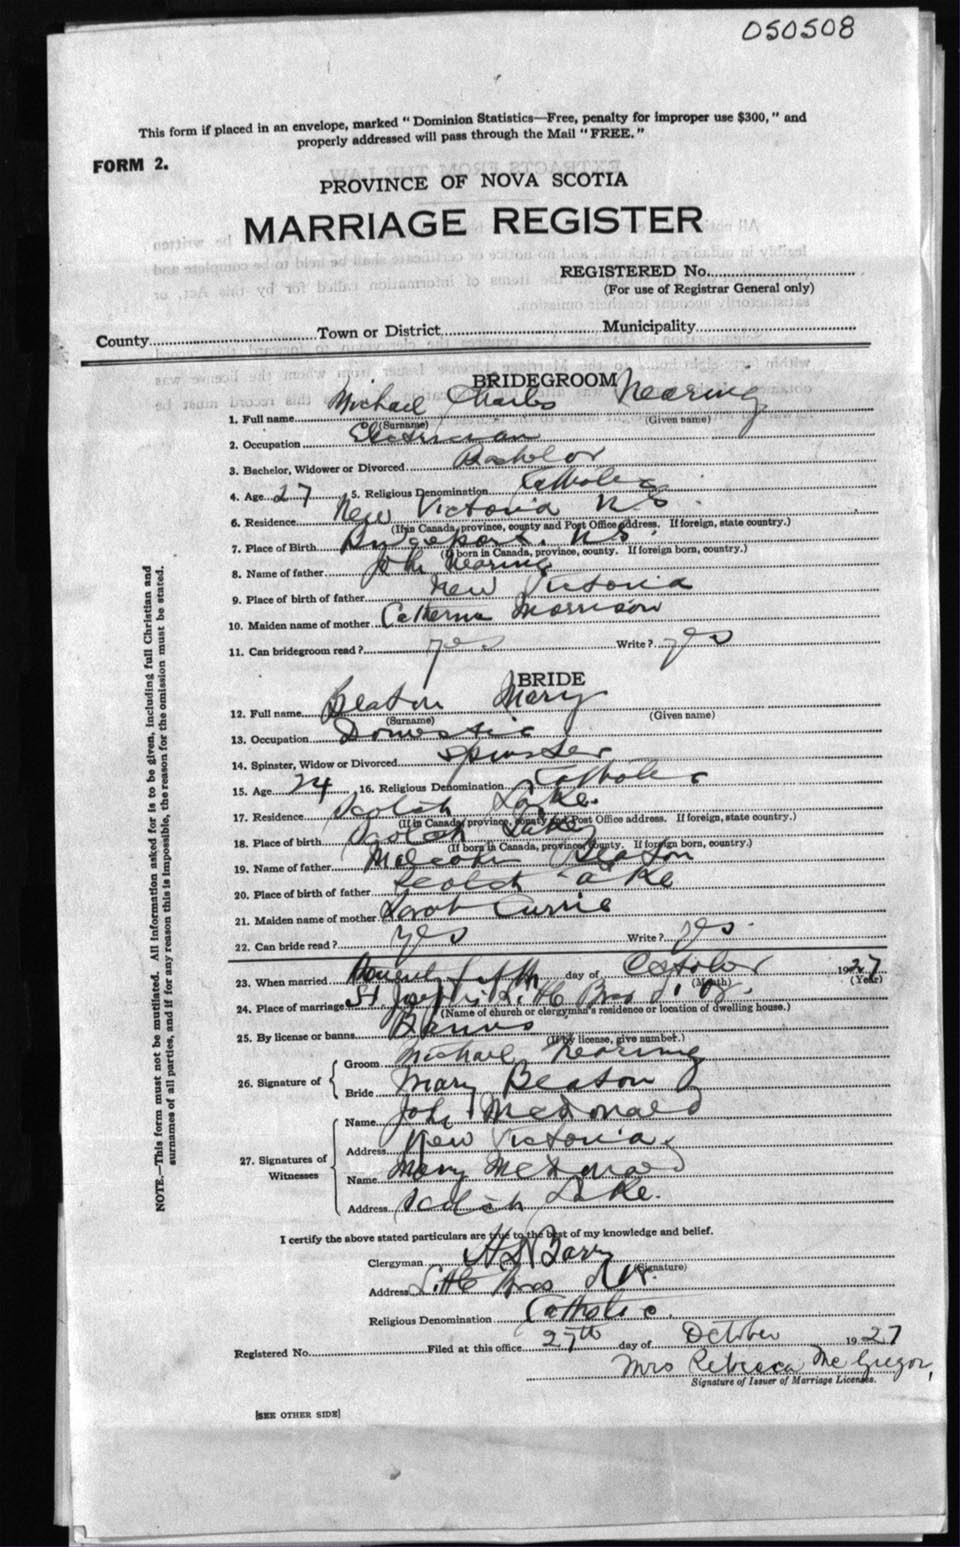 050508
This form if placed in an envelope, marked "Dominion Statistics—Free, penalty for improper use $300," and
properly addressed will pass through the Mail "FREE."
FORM 2.
PROVINCE OF NOVA SCOTIA
MARRIAGE REGISTER
REGISTERED No.
(For use of Registrar General only)
County Town or District Municipality
BRIDEGROOM
1. Full name Michael Charles Nearing
(Surname) (Given name)
2. Occupation Electrician
3. Bachelor, Widower or Divorced Bachelor
4. Age 27 5. Religious Denomination Catholic
6. Residence New Victoria N S
(If in Canada, province, county and Post Office address. If foreign, state country.)
7. Place of Birth N.S.
(If born in Canada, province, county. If foreign born, country.)
8. Name of father John Nearing
9. Place of birth of father New Victoria
10. Maiden name of mother Catherine Morrison
11. Can bridegroom read? yes Write? yes
BRIDE
12. Full name Beaton Mary
(Surname) (Given name)
13. Occupation Domestic
14. Spinster, Widow or Divorced Spinster
15. Age 24 16. Religious Denomination Catholic
17. Residence Scotch Lake.
(If in Canada, province, county and Post Office address. If foreign, state country.)
18. Place of birth Scotch Lake
(If born in Canada, province, county. If foreign born, country.)
19. Name of father Malcolm Beaton
20. Place of birth of father Scotch Lake
21. Maiden name of mother Sarah Currie
22. Can bride read? yes Write? yes
23. When married day of October 1927
(Month) (Year)
24. Place of marriage St Joseph's Little Bras d'
(Name of church or clergyman's residence or location of dwelling house.)
25. By license or banns Banns
(If by license, give number.)
26. Signature of
Groom Michael Nearing
Bride Mary Beaton
27. Signatures of Witnesses
Name John McDonald
Address New Victoria
Name Mary McDonald
Address Scotch Lake.
I certify the above stated particulars are true to the best of my knowledge and belief.
Clergyman
(Signature)
Address Little Bras d'
Religious Denomination Catholic.
Registered No. Filed at this office 27th day of October 1927
Mrs Rebecca McGregor,
Signature of Issuer of Marriage Licenses.
[SEE OTHER SIDE]
NOTE.—This form must not be mutilated. All information asked for is to be given, including full Christian and
surnames of all parties, and if for any reason this is impossible, the reason for the omission must be stated.